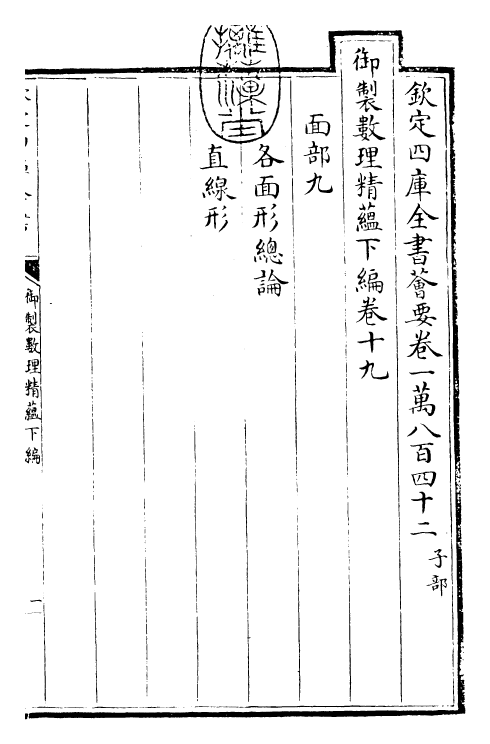 欽定四庫全書薈要卷一萬八百四十二 子部
御製數理精蘊下編卷十九
面部九
各面形總論
直線形
御製數理精蘊下編